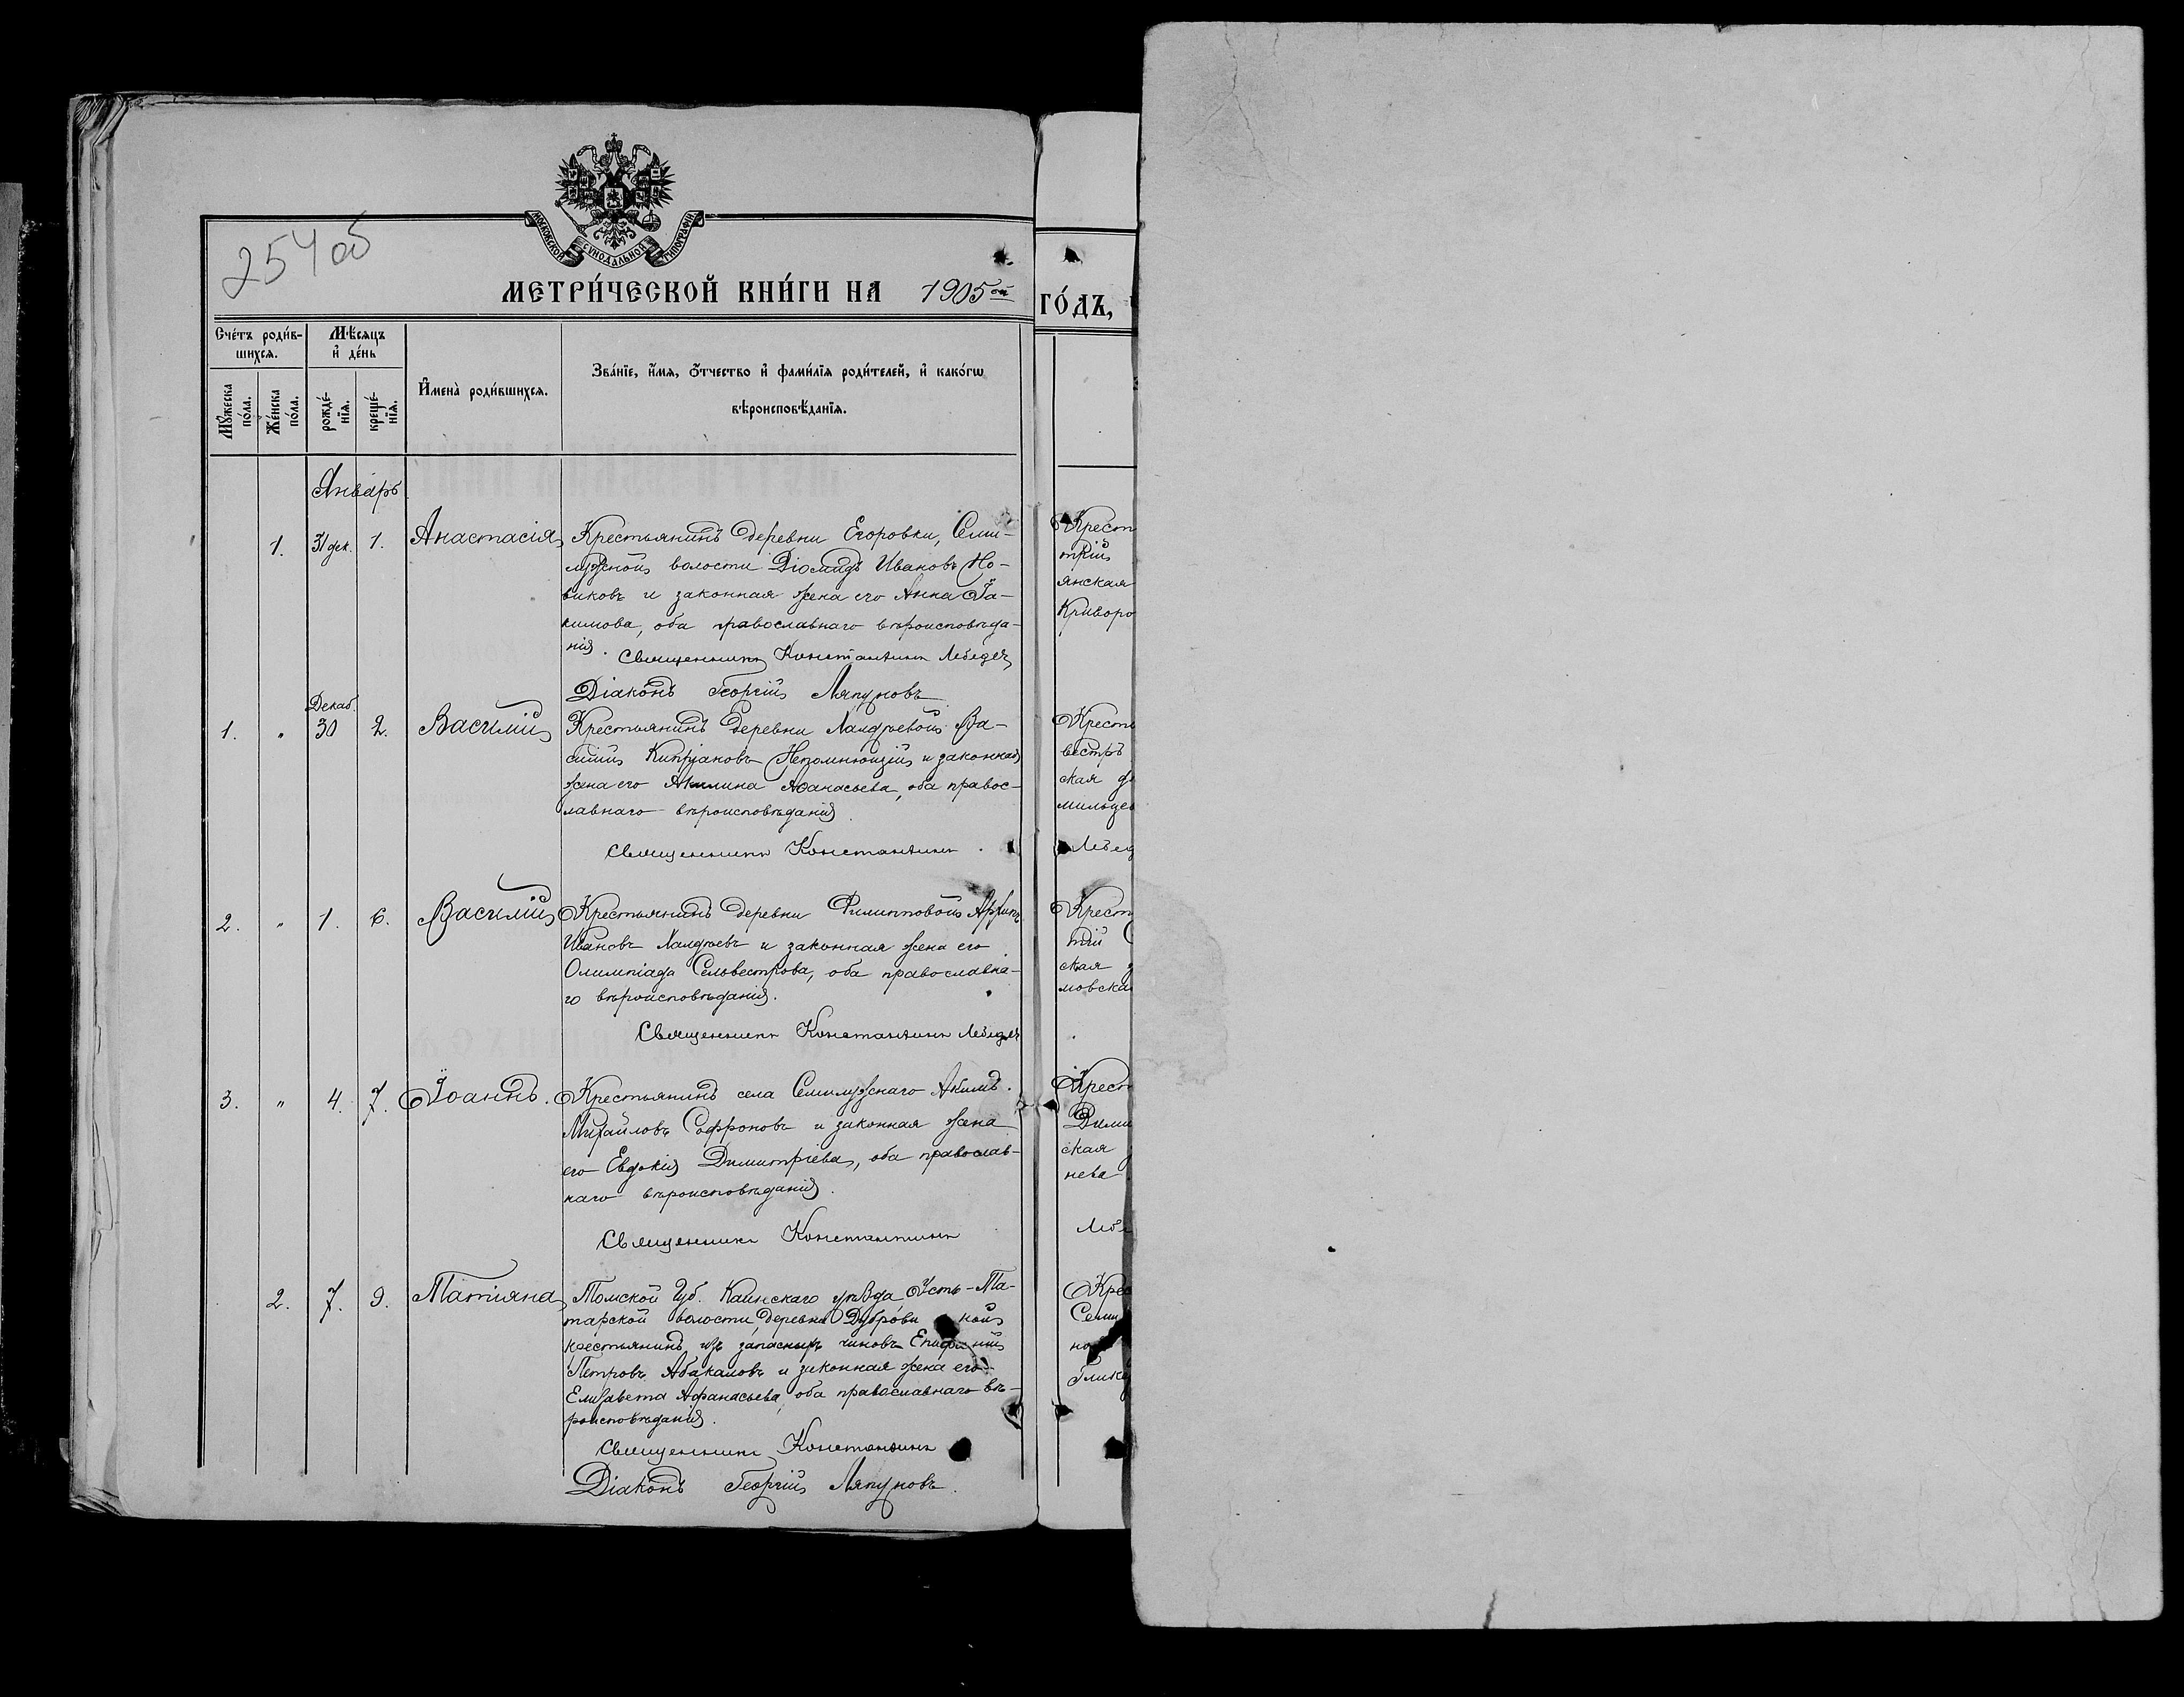 254 об
МОСКОВСКОЙ СѴНОДАЛЬНОЙ ТИПОГРАФІИ
МЕТРИ́ЧЕСКОЙ КНИ́ГИ НА 1905ый
ГО́ДЪ,
Сче́тъ роди́в-
шихся.
Мѣсяцъ
и де́нь
Мꙋ́жеска по́ла.
Же́нска по́ла.
рожде́-
нїя.
креще́-
нїя.
Имена̀ роди́вшихся.
Зва́нїе, и́мя, ѻ́тчество и фами́лїя роди́телей, и како́гѡ
вѣроисповѣ́данїя.
Январь
1. 31 дек. 1. Анастасія Крестьянинъ деревни Егоровки, Семи-
лужной волости Діомидъ Ивановъ Но-
виковъ и законная жена его Анна Іа-
кимова, оба православнаго вѣроисповѣда-
нія. Священникъ Константинъ Лебедев
Діаконъ Георгій Ляпуновъ
Декаб.
1. " 30 2. Василій Крестьянинъ деревни Халдѣевой Ва-
силій Кипріановъ Непомнющій и законная
жена его Акилина Афанасьева, оба правос-
лавнаго вѣроисповѣданія.
Священникъ Константинъ
2. " 1. 6. Василій Крестьянинъ деревни Филипповой
Ивановъ Халдѣевъ и законная жена его
Олимпіада Сельвестрова, оба православна-
го вѣроисповѣданія.
Священникъ Константинъ Лебедев
3. " 4. 7. Іоаннъ. Крестьянинъ села Семилужнаго Акимъ
Михайловъ Софроновъ и законная жена
его Евдокія Димитріева, оба православ-
наго вѣроисповѣданія.
Священникъ Константинъ
2. 7. 9. Татіяна Томской Губ. Каинскаго уѣзда Усть-Та-
тарской волости, деревни Дуброви ной
крестьянинъ изъ запасныхъ чиновъ Епифа ній
Петровъ Абакамовъ и законная жена его
Елизавета Афанасьева, оба православнаго вѣ-
роисповѣданія.
Священникъ Константинъ
Діаконъ Георгій Ляпуновъ.
Крест
трій
янская
Криворо
Кресть
вестръ
ская де
мильцев
Лебед
Крест
тій
ская
мовска
Крест
Дими
ская
нева
Лебе
Крес
Семи
но
Глик